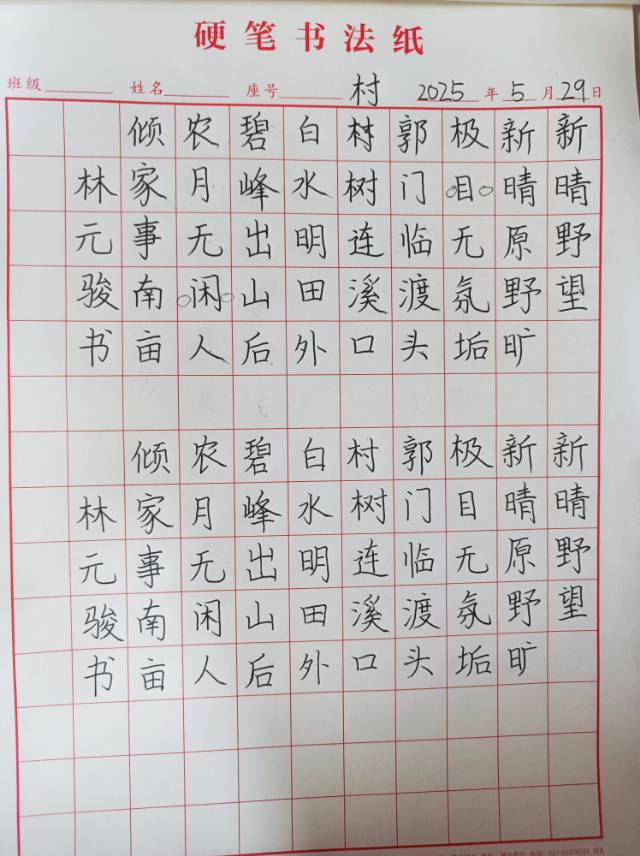 硬笔书法纸
班级 姓名 座号 村 2025年5月29日
新晴野望
新晴原野旷
极目无氛垢
郭门临渡头
村树连溪口
白水明田外
碧峰出山后
农月无闲人
倾家事南亩
林元骏书
新晴野望
新晴原野旷
极目无氛垢
郭门临渡头
村树连溪口
白水明田外
碧峰出山后
农月无闲人
倾家事南亩
林元骏书